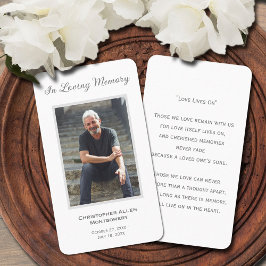 In Loving Memory
Christopher Allen
Montgomery
"Love Lives On"
Those we love remain with us
for love itself lives on,
and cherished memories
never fade
because a loved one's gone.
Those we love can never
be more than a thought apart,
long as there is memory,
'll live on in the heart.